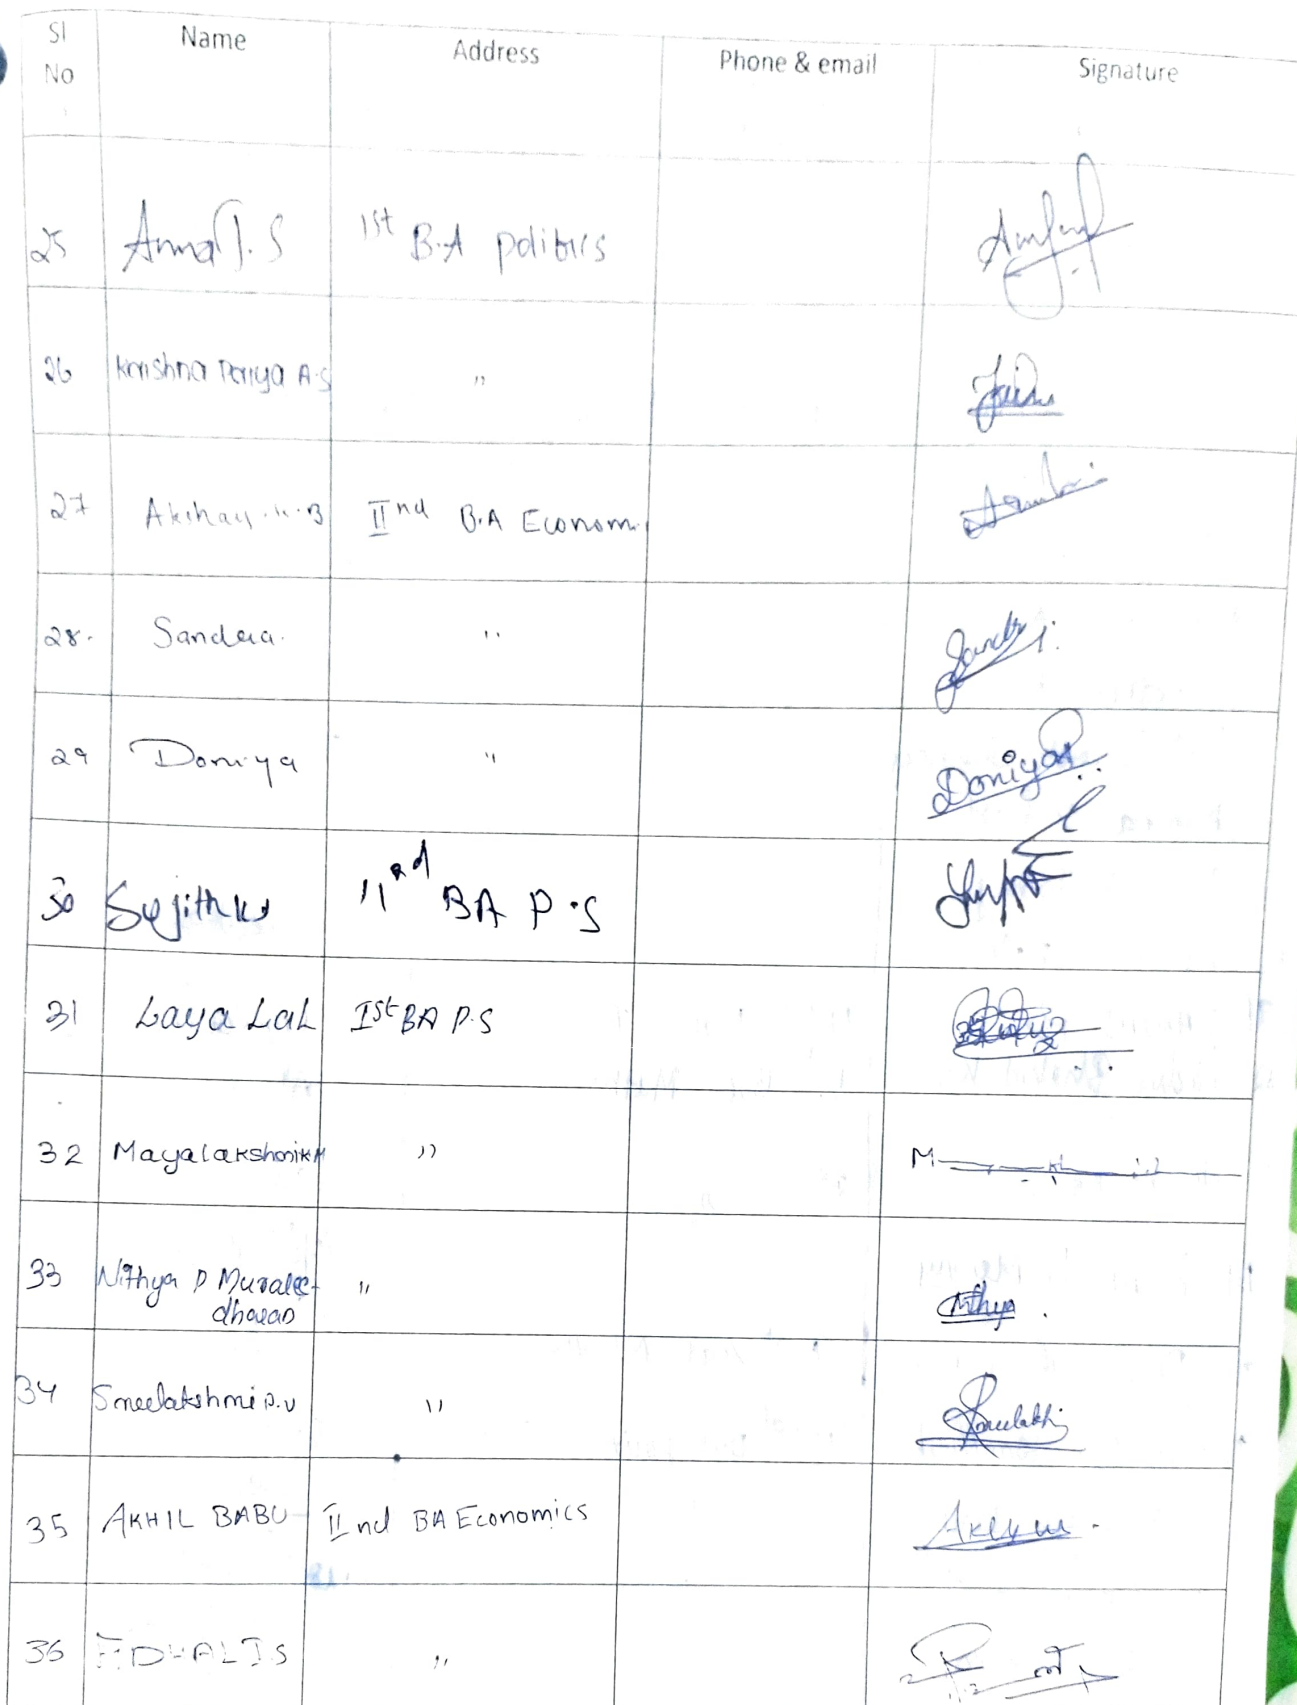 Sl No Name Address Phone & email Signature
25 Anna J. S 1st B.A politics
26 Krishna Priya A.S "
27 Akshay . K . B IInd B.A Econom
28. Sandra. "
29 Doniya " Doniya
30 Sujith K S IInd BA P.S
31 Laya Lal Ist BA P.S
32 Mayalakshmi K M "
33 Nithya P Muralee- " Nithya
dharan
34 Sreelakshmi P.V "
35 AKHIL BABU IInd BA Economics
36 "